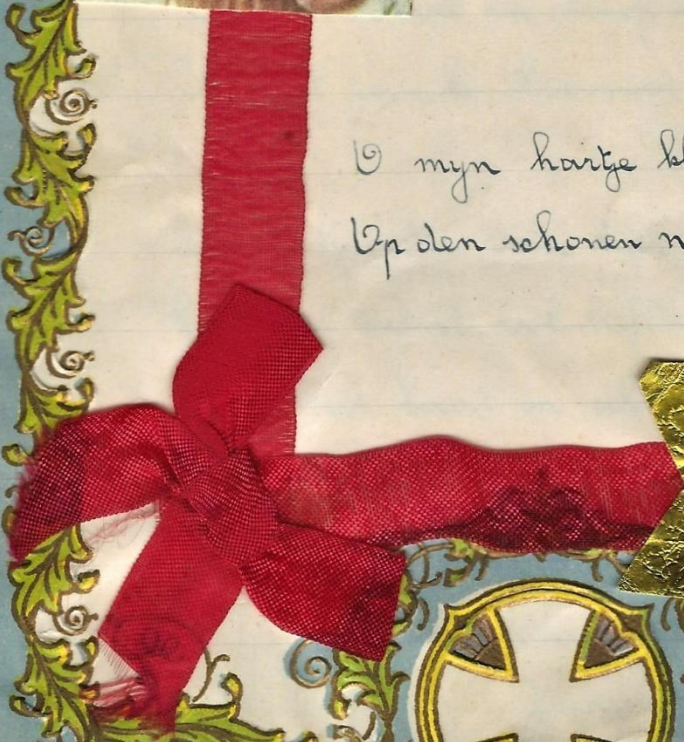 O mijn hartje kl
Op den schonen n